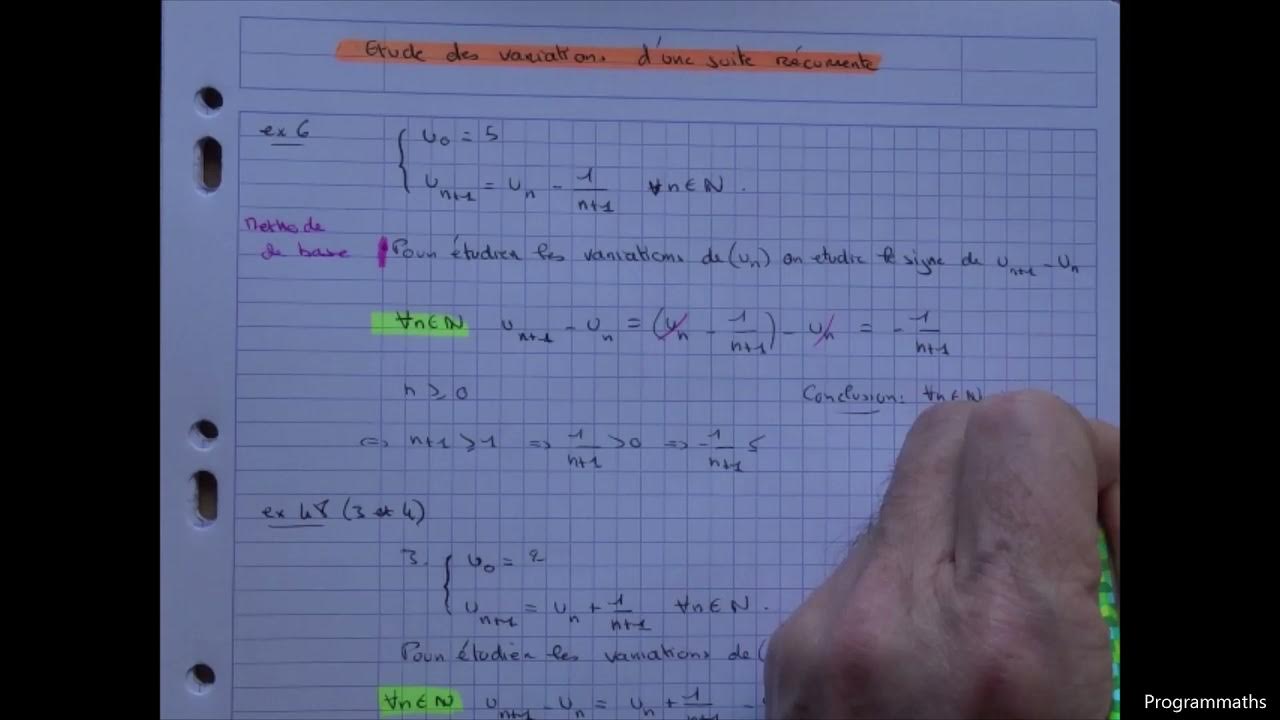 Etude des variations d'une suite récurrente
ex 6
{ u₀ = 5
u_{n+1} = u_n - 1/(n+1) ∀n∈N.
Methode
de base
Pour étudier les variations de (u_n) on etudie le signe de u_{n+1} - u_n
∀n∈N u_{n+1} - u_n = (u_n - 1/(n+1)) - u_n = - 1/(n+1)
n ≥ 0
Conclusion: ∀n∈N
⇔ n+1 ≥ 1 ⇒ 1/(n+1) > 0 ⇒ -1/(n+1) ≤
ex 48 (3 et 4)
3. { u₀ = 2
u_{n+1} = u_n + 1/(n+1) ∀n∈N.
Pour étudier les variations de (
∀n∈N u_{n+1} - u_n = u_n + 1/(n+1) -
Programmaths